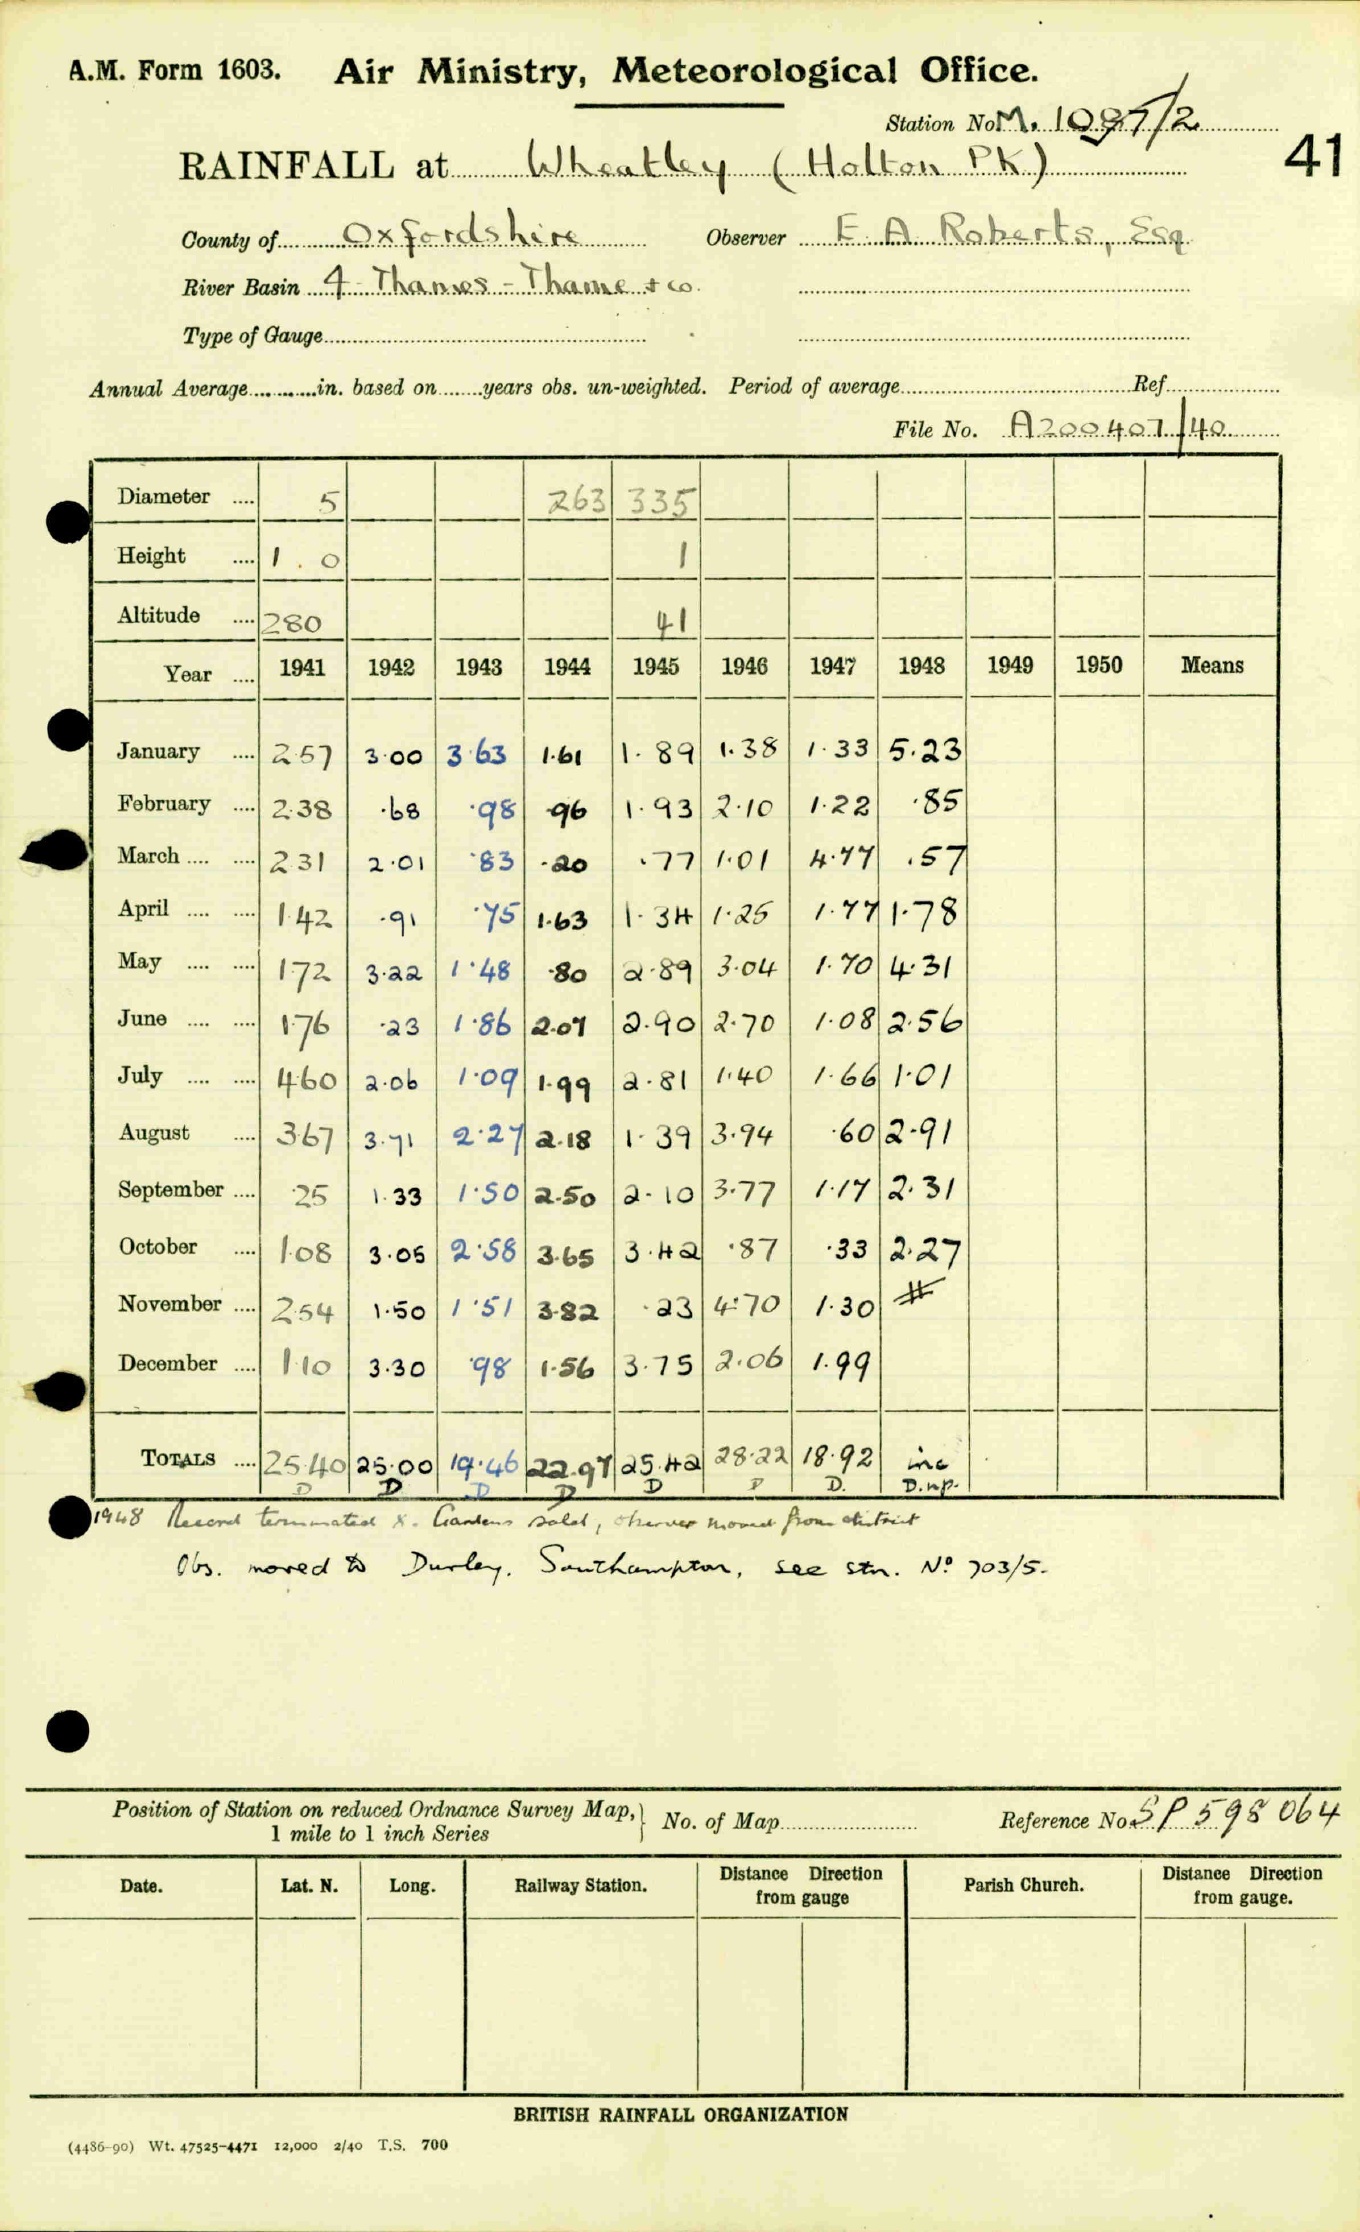 A.M. Form 1603. Air Ministry, Meteorological Office.
Station No. M. 1097/2
41
RAINFALL at Wheatley (Holton PK)
County of Oxfordshire Observer E. A. Roberts, Esq
River Basin 4 Thames - Thame + co.
Type of Gauge
Annual Average in. based on years obs. un-weighted. Period of average Ref
File No. A200407/40
Diameter .... 5 263 335
Height .... 1.0 1
Altitude .... 280 41
Year .... 1941 1942 1943 1944 1945 1946 1947 1948 1949 1950 Means
January .... 2.57 3.00 3.63 1.61 1.89 1.38 1.33 5.23
February .... 2.38 .68 .98 .96 1.93 2.10 1.22 .85
March .... .... 2.31 2.01 .83 .20 .77 1.01 4.77 .57
April .... .... 1.42 .91 .75 1.63 1.34 1.25 1.77 1.78
May .... .... 1.72 3.22 1.48 .80 2.89 3.04 1.70 4.31
June .... .... 1.76 .23 1.86 2.07 2.90 2.70 1.08 2.56
July .... .... 4.60 2.06 1.09 1.99 2.81 1.40 1.66 1.01
August .... 3.67 3.71 2.27 2.18 1.39 3.94 .60 2.91
September .... .25 1.33 1.50 2.50 2.10 3.77 1.17 2.31
October .... 1.08 3.05 2.58 3.65 3.42 .87 .33 2.27
November .... 2.54 1.50 1.51 3.82 .23 4.70 1.30 #
December .... 1.10 3.30 .98 1.56 3.75 2.06 1.99
TOTALS .... 25.40 25.00 19.46 22.97 25.42 28.22 18.92 inc
D D D D D D D. D.n.p.
1948 Record terminated x. Gardens sold, observer moved from district
Obs. moved to Durley, Southampton, see stn. No. 703/5.
Position of Station on reduced Ordnance Survey Map, 1 mile to 1 inch Series } No. of Map Reference No. SP 598 064
Date. Lat. N. Long. Railway Station. Distance from gauge Direction Parish Church. Distance from gauge. Direction
BRITISH RAINFALL ORGANIZATION
(4486-90) Wt. 47525-4471 12,000 2/40 T.S. 700